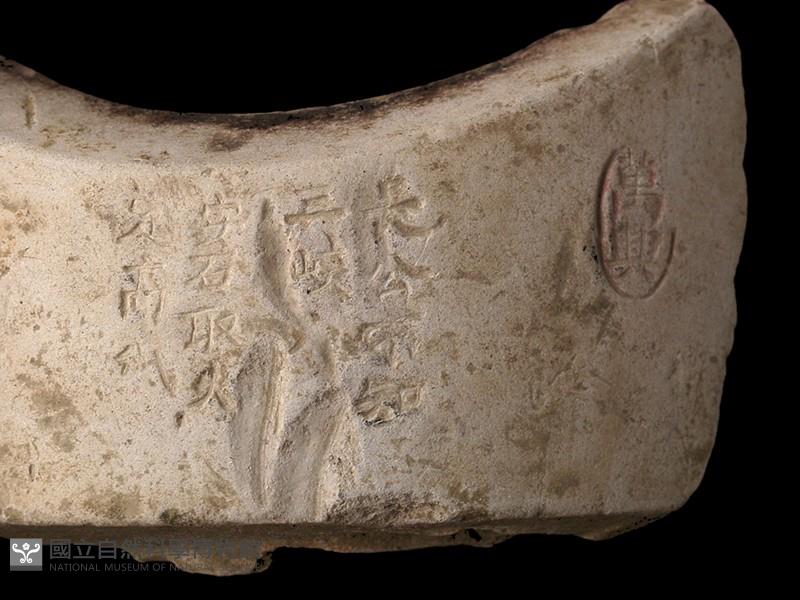 萬興
長公不知
三峽
安石取火
定高低
國立自然科學博物館
NATIONAL MUSEUM OF NATURAL